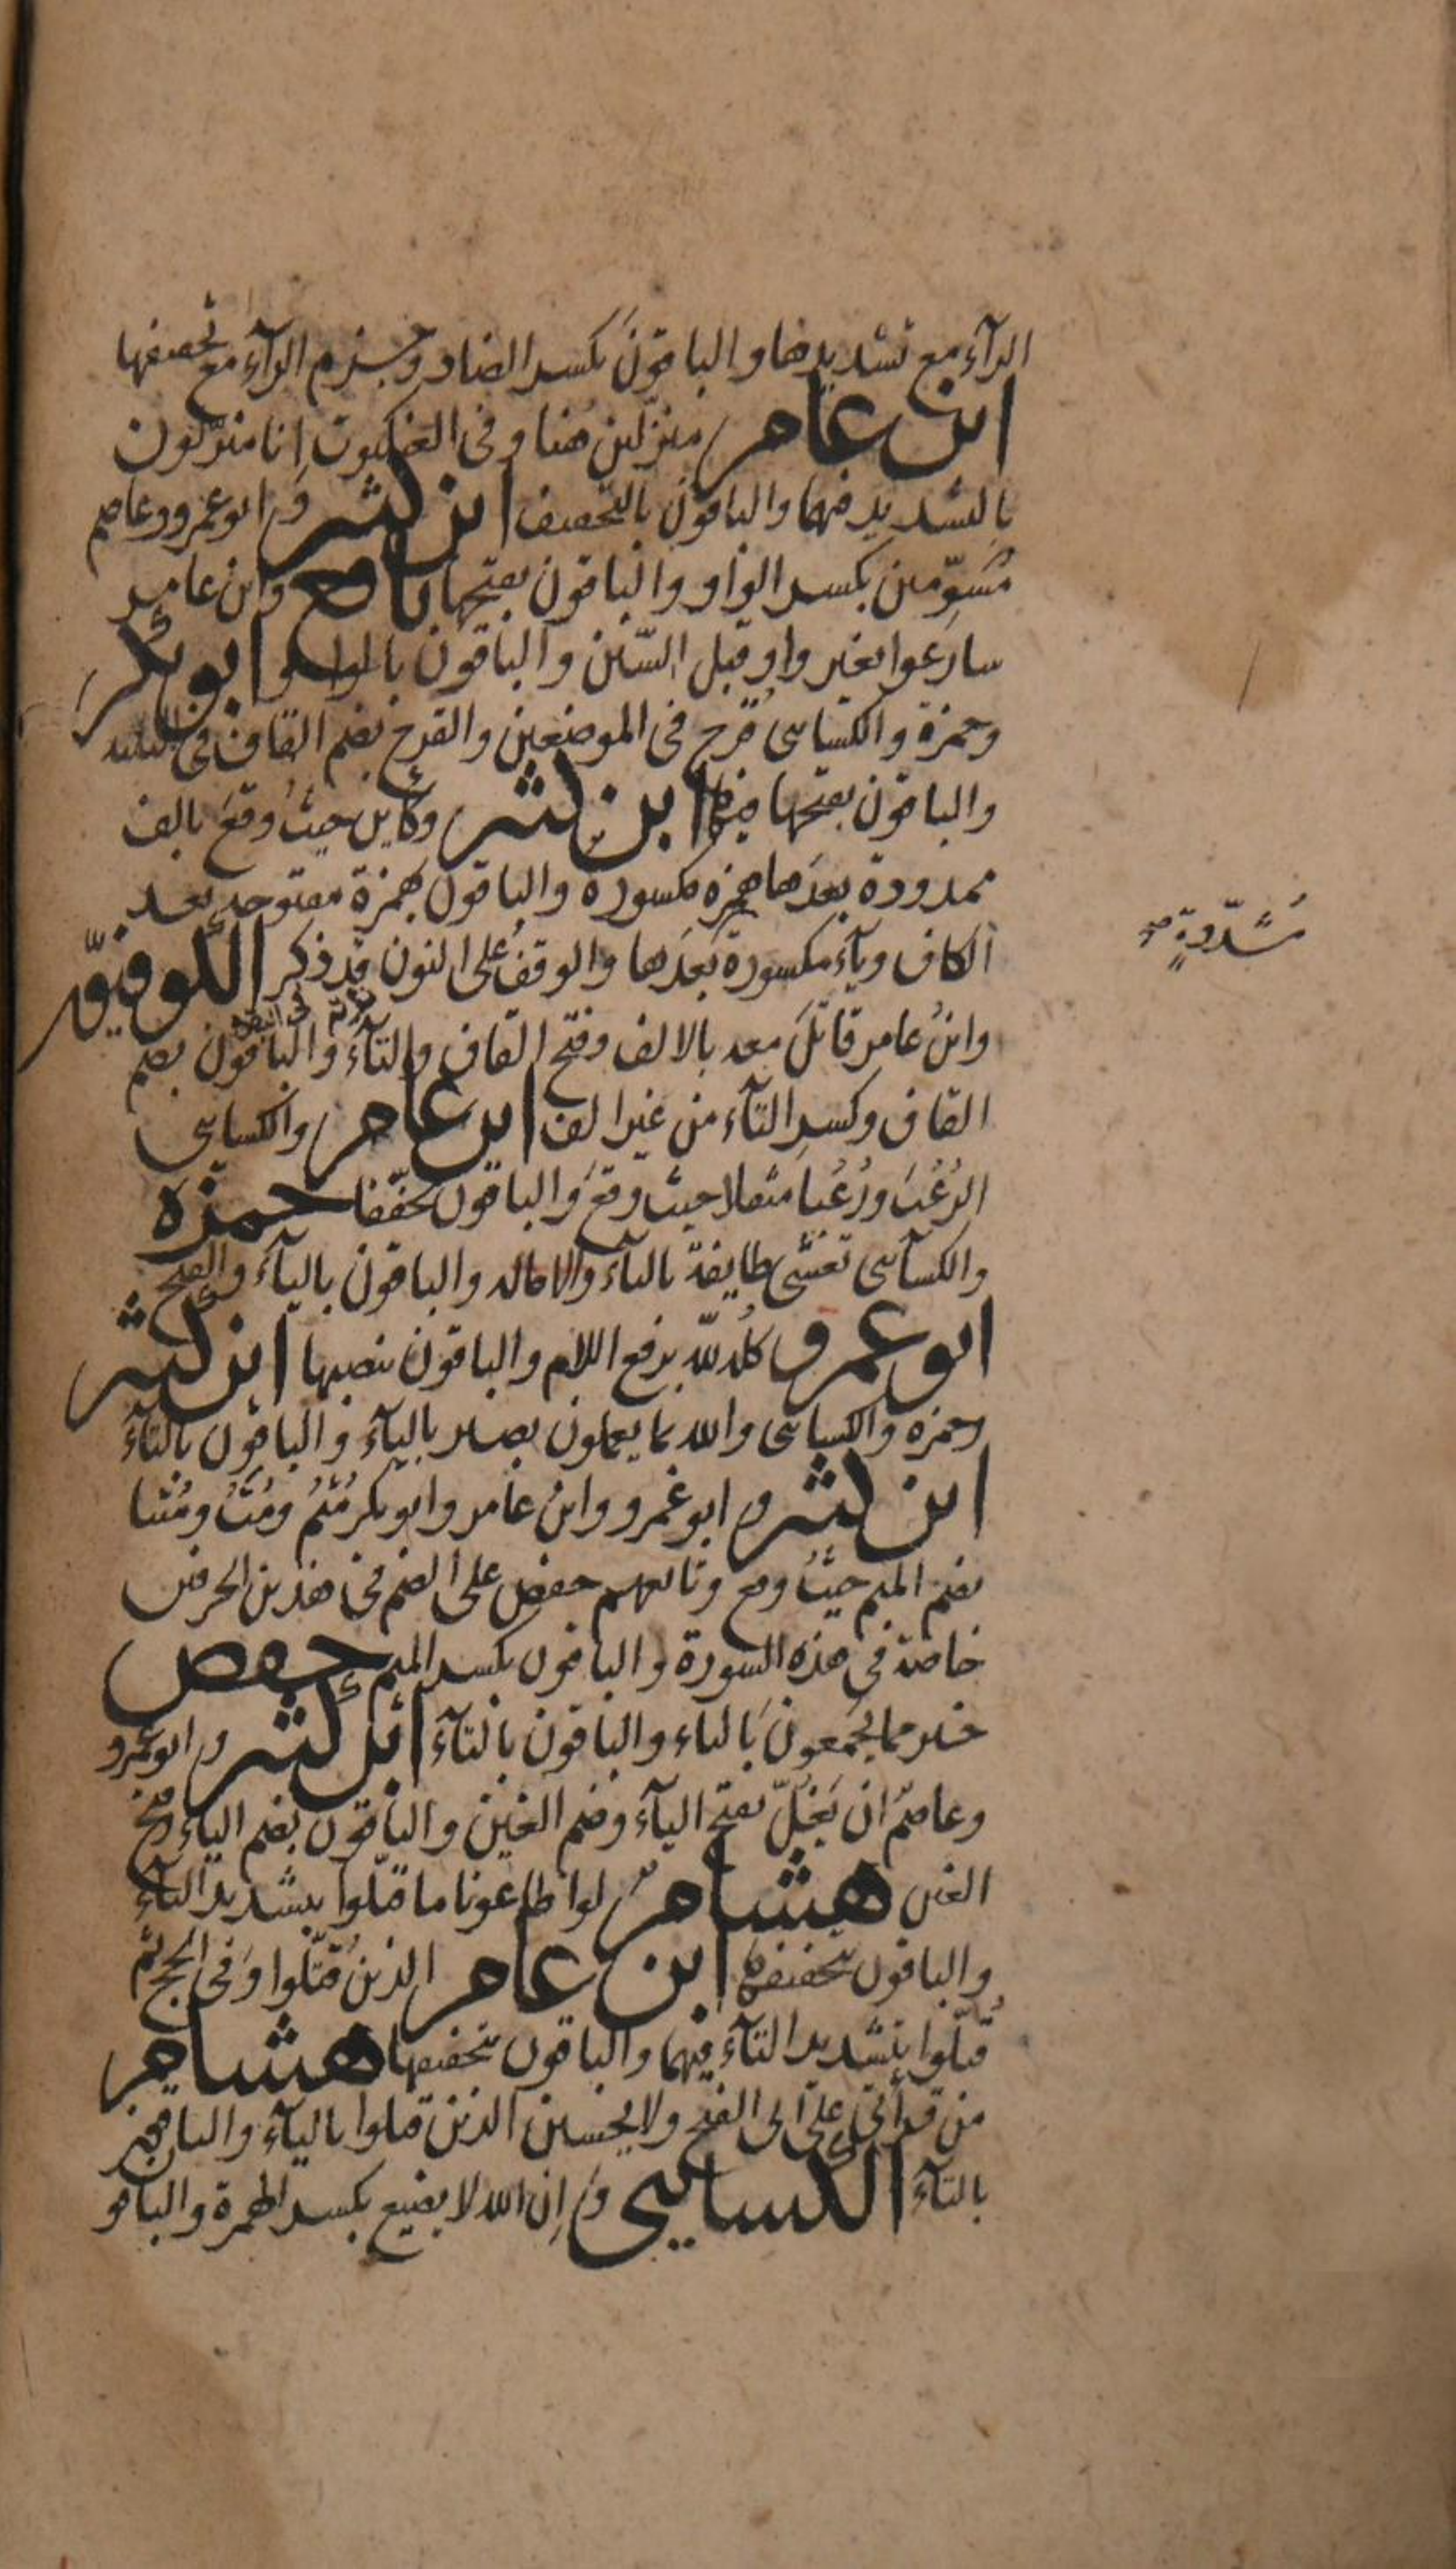 الرآء مع تشديدها والباقونَ بكسر الضاد وجزم الرآء مع تخفيفها
ابن عامر منزّلين هُنا وفى العنكبوت انا منزّلون
بالتشديد فيهما والباقون بالتخفيف ابن كثير وابو عمرو وعاصم
مُسَوِّمين بكسر الواو والباقون بفتحها نافع وابن عامر
سارعوا بغير واو قبل السّين والباقون بالواو ابو بكر
وحمزة والكسائى قُرح فى الموضعين والقرح بضم القاف فى الثلثه
والباقون بفتحها فيها ابن كثير وكأين حيثُ وقعَ بالف
ممدودة بعدَها همزة مكسورة والباقون بهمزة مفتوحه بعد
الكاف ويآء مكسورة بَعدَها والوقفُ على النون قد ذكر الكوفيّون
مُشدّدةٍ صح
وابنُ عامر قاتَلَ معه بالالف وفتح القاف والتآء والباقون بضم
القاف وكسر التآء من غير الف ابن عامر والكسائى
الرُعُبَ ورُعُبا مثقلا حيث وقعَ والباقون مخفّفا حمزه
والكسآئى تغشى طايفة بالتاء والاماله والباقون باليآء والفتح
ابو عمرو كلُه للّه برفع اللام والباقون بنصبها ابن كثير
وحمزه والكسائى والله بما يعملون بصير باليآء والباقون بالتآء
ابن كثير وابو عَمرو وابنُ عامر وابو بكر مُتُّمْ ومُتُّ ومُتْنا
بضم الميم حيثُ وقع وتابعهم حفص على الضم فى هذين الحرفين
خاصة فى هذه السورة والباقون بكسر الميم حفص
خير مما يجمعونَ بالياء والباقون بالتآء ابن كثير وابو عمرو
وعاصمٌ ان يَغُلّ بفتح اليآء وضم الغين والباقون بضم الياء وفتح
الغين هشام لو اطاعونا ما قتّلوا بتشديد التآء
والباقون بتخفيفها ابن عامر الذينَ قُتّلوا وَفى الحج ثم
قُتّلوا بتشديد التآء فيهما والباقون بتخفيفها هشام
من قرأتى على ابى الفتح ولا يحسبن الذين قتلوا باليآء والباقون
بالتآء الكسائى وَاِن الله لا يضيع بكسر الهمزة والباقو